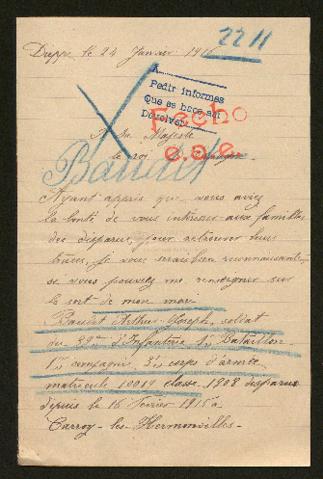 Dieppe le 24 Janvier 1916
2211
A
Pedir informes
Que se hace así
Devolver
Fecho
e.a.e.
A Sa Majesté
le roi d'Espagne
Baudet
Ayant appris que vous aviez
la bonté de vous intéresser aux familles
des disparus, pour retrouver leurs
traces, je vous serais bien reconnaissante
si vous pouviez me renseigner sur
le sort de mon mari
Baudet Arthur Joseph, soldat
du 39me d'Infanterie 1er Bataillon
1re compagnie, 3e corps d'armée
matricule 10019 classe 1908 disparu
depuis le 16 Février 1915 à
Carroy-les-Hermonvilles-